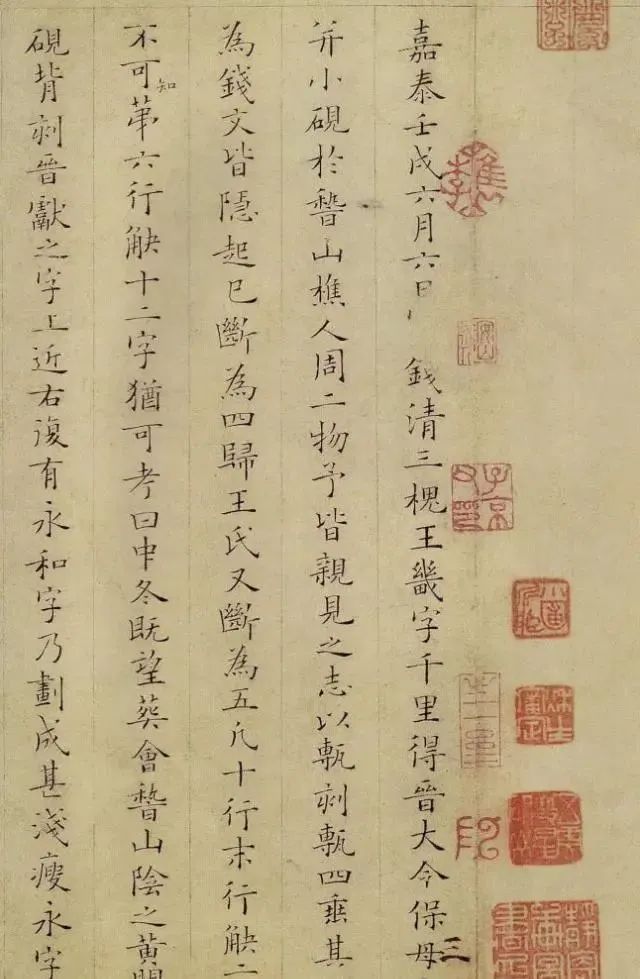 嘉泰壬戌六月六日 錢清三槐王畿字千里得晉大令保母
三
并小硯於稽山樵人周二物予皆親見之志以甎刻甎四垂其
為錢文皆隱起已斷為四歸王氏又斷為五凡十行末行觖二
不可知第六行觖十二字猶可考曰中冬既望葬會稽山陰之黃
硯背刻晉獻之字上近右復有永和字乃劃成甚淺瘦永字
子京父印